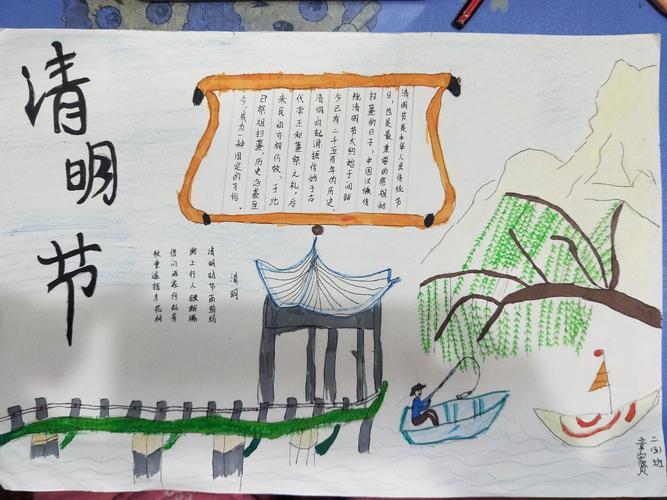 清明节
清明节是中华人民传统节
日,也是最重要的祭祖和
扫墓的日子,中国汉族传
统清明节大约始于周朝
今已有二千五百年的历史,
清明的起源,据传始于古
代帝王和墓祭之礼,后
来民间亦相仿效,于此
日祭祖扫墓,历史沿袭至
今,成为一种固定的习俗。
清明
清明时节雨纷纷
路上行人欲断魂
借问酒家何处有
牧童遥指杏花村